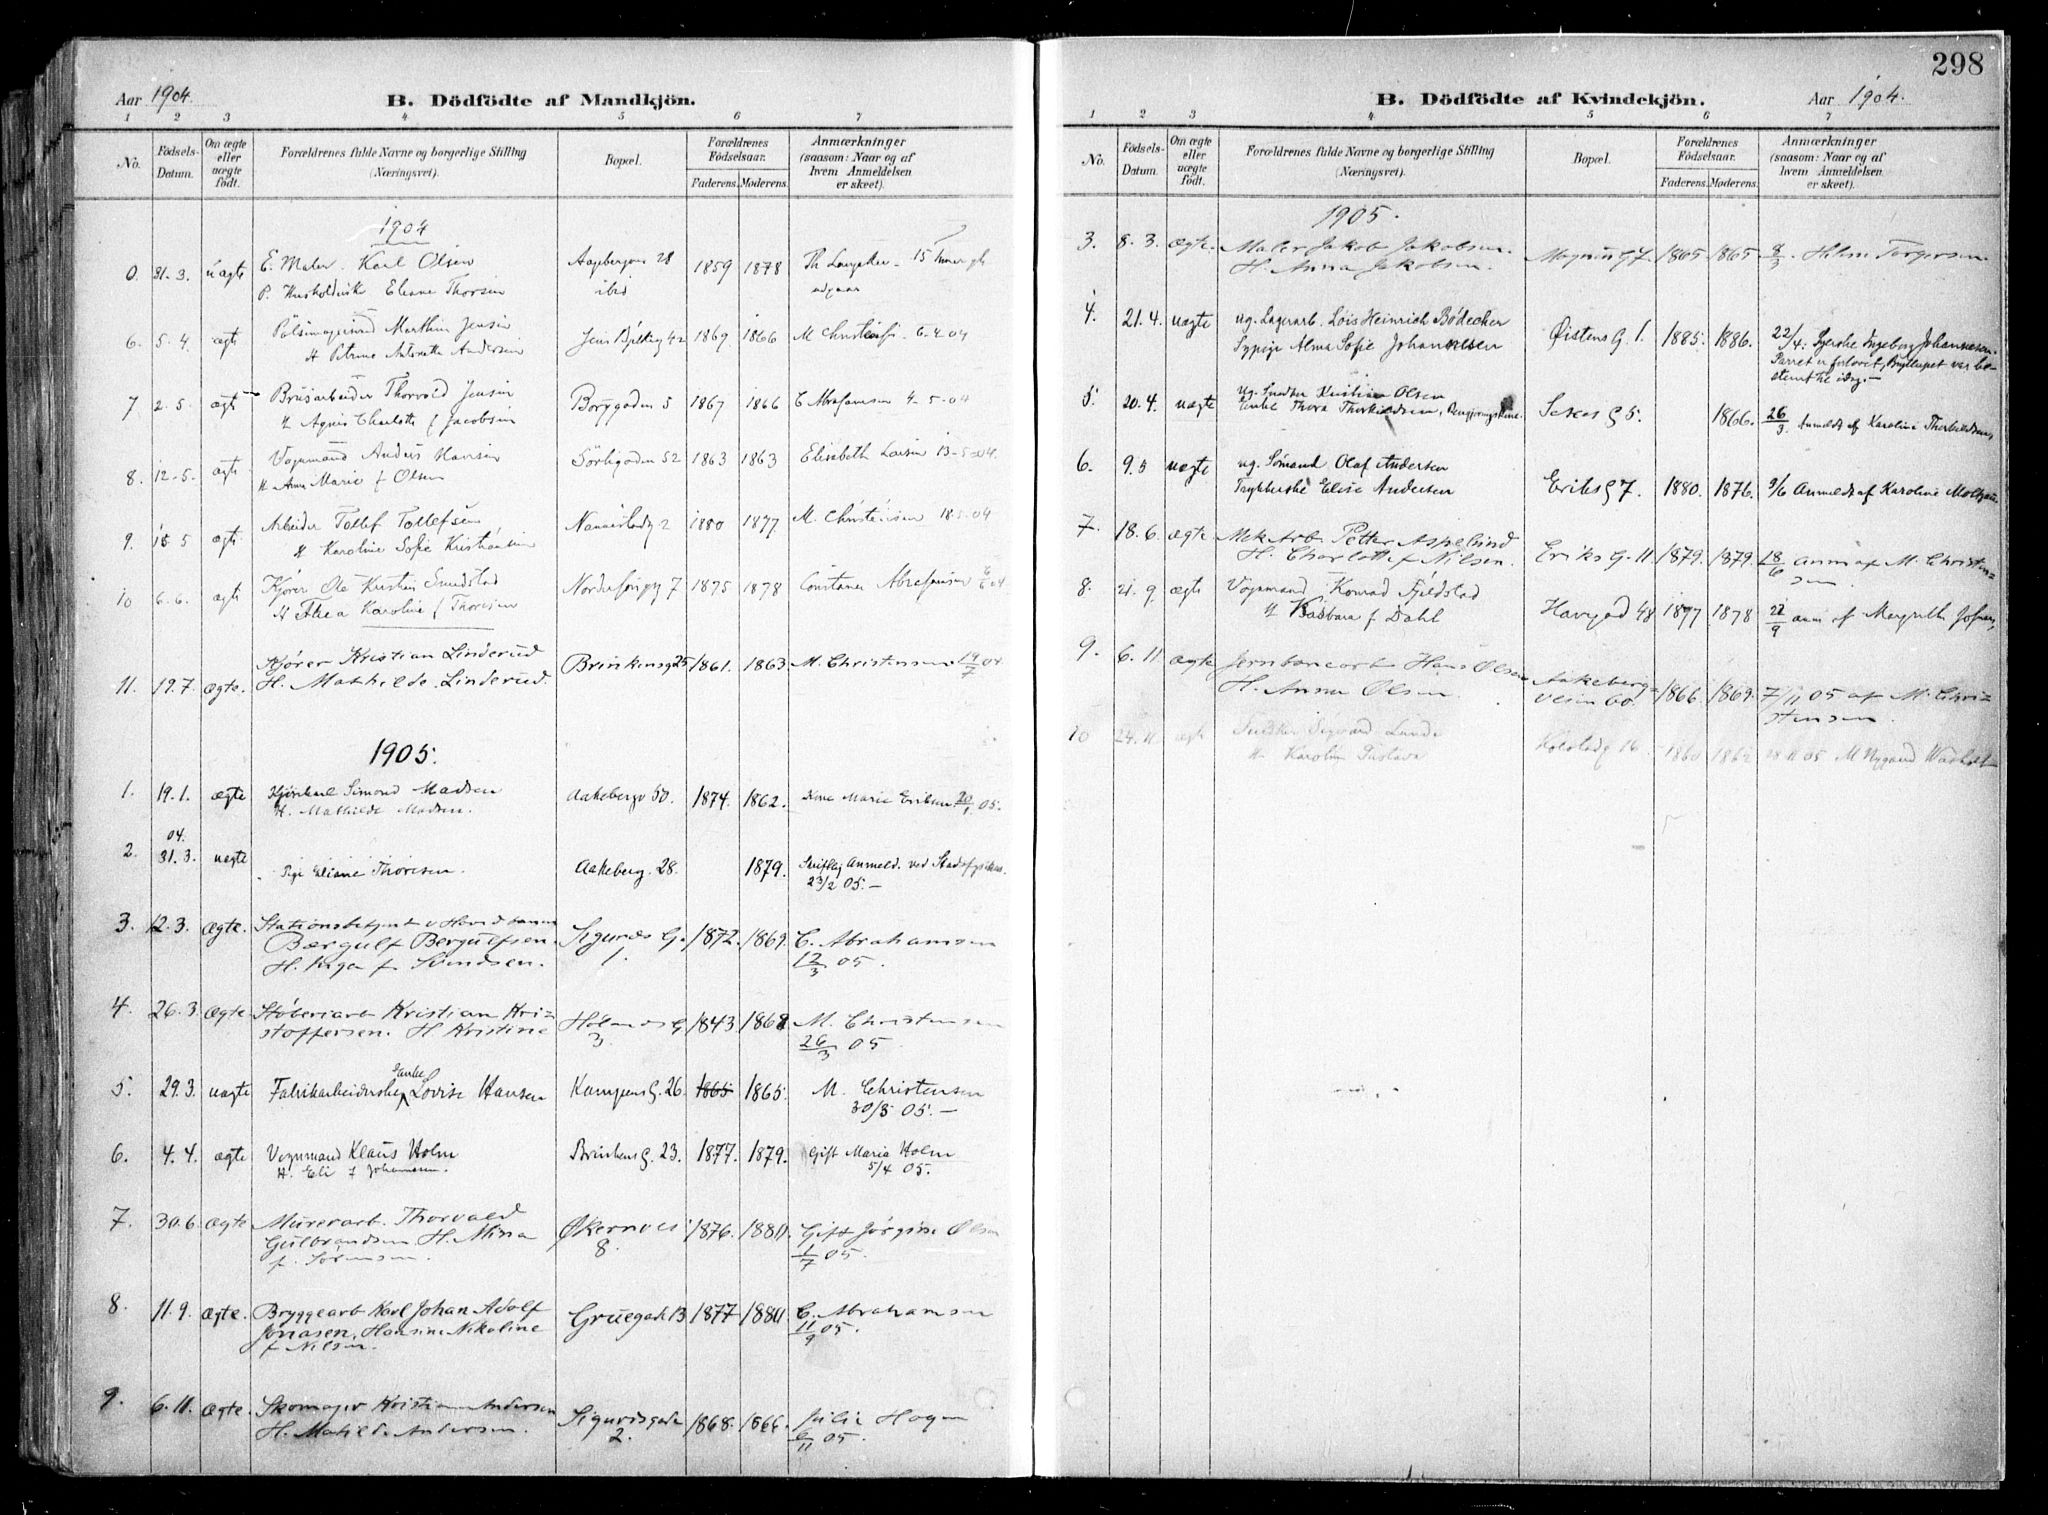 298
Aar 1904.
B. Dödfödte af Mandkjön.
1 2 3 4 5 6 7
No.
Födsels-Datum.
Om ægte eller uægte födt.
Forældrenes fulde Navne og borgerlige Stilling (Næringsvei).
Bopæl.
Forældrenes Födselsaar.
Faderens. Moderens.
Anmærkninger (saasom: Naar og af hvem Anmeldelsen er skeet).
1904
0. 31.3. uægte E. Maler Karl Olsen Aagebergvn 28 1859 1878 15
P. Eliane Thorsen ibid
6. 5.4. ægte Marthin Jensen 42 1869 1866 M Christensen 6-4-04
H Petrine Antonette Andersen
7 2.5. ægte Thorvald Jensen Borggaden 5 1867 1866 C Abrahamsen 4-5-04
H Agnes Charlotte f Jacobsen
8. 12-5. ægte Vognmand Anders Hansen Sörligaden 52 1863 1863 Elisabeth Larsen 13-5-04.
H. Anna Marie f Olsen
9. 15 5 ægte Arbeider Tollef Tollefsen 2 1880 1877 M. Christensen 18.5.04
H Karoline Sofie Kristiansen
10 6.6. ægte Kjører Ole Kristin Sundstad 7 1875 1878 Constance Abrahamsen 6/6 04
H Thea Karoline f Thoresen
Kjører Kristian Linderud Brinkensg 25 1861. 1863 M. Christensen 19/7 04
11. 19.7. ægte. H. Mathilde Linderud.
1905.
1. 19.1. ægte Kjørekarl Simond Madsen Aakebergv 50. 1874. 1862. Marie Eriksen 20/1 05.
H. Mathilde Madsen.
04.
2. 31.3. uegte Pige Eliane Thoresen. Aakeberg. 28. 1879. Skriftlig Anmeld. ved Stadsfysikus
23/2 05.-
3. 12.3. Ægte. Stationsbetjent v Hovedbanen Sigurds G. 1872. 1869. C. Abrahamsen
Bærgulf Bergulfsen. 1. 12/3 05.
H. Inga f Svendsen.
4. 26.3. Ægte Støberiarb Kristian Kri= Hölands G 1843 1868 M. Christensen
stoffersen. H Kristine 3. 26/3 05.
5. 29.3. uægte Fabrikarbeiderske Enke Lovise Hansen Kampens G. 26. 1865 1865. M. Christensen
30/3 05.-
6. 4.4. ægte Vognmand Klaus Holm Brinkens G. 23. 1877. 1879. Gift Maria Holm
H. Eli f Johannesen. 5/4 05.
7. 30.6. ægte Murerarb. Thorvald Økernvei 1876. 1880. Gift Jørgine Olsen
Gulbrandsen H. Mina 8. 1/7 05.
f. Sørensen.
8. 11.9. Ægte. Bryggearb Karl Johan Adolf Gruegade 13 1877 1880 C. Abrahamsen
Jonasen, Hansine Nikoline 11/9 05.
f Nilsen.
9. 6.11. Ægte. Skomager Kristian Andersen Sigurdsgade 1868. 1866. Julie Hagen
H. Matilde Andersen. 2. 6/11 05.
B. Dödfödte af Kvindekjön.
Aar 1904.
1 2 3 4 5 6 7
No.
Födsels-Datum.
Om ægte eller uægte födt.
Forældrenes fulde Navne og borgerlige Stilling (Næringsvei).
Bopæl.
Forældrenes Födselsaar.
Faderens. Moderens.
Anmærkninger (saasom: Naar og af hvem Anmeldelsen er skeet).
1905.
3. 8.3. Ægte. Maler Jakob Jakobsen 7 1865 1865 8/3. Hilm Torgersen
H. Anna Jakobsen.
4. 21.4. uægte ug. Lagerarb. Lois Heinrich Bödecker Øistens G 1. 1885. 1886. 22/4: Syerske Ingeborg Johannesen.
Sypige Alma Sofie Johannesen Parret er forlovet, Brylluppet var be-
stemt til idag.-
5. 20.4. uægte ug. Snedker Kristian Olsen
Enke Thora Thorkildsen, Rengjøringskone. G 5. 1866. 26/3 Anmeldt af Karoline Thorkildsen
6. 9.5 uægte ug. Sömand Olaf Andersen
Trykkerske Elise Andersen Eriks G 7. 1880. 1876. 9/6 Anmeldt af Karoline
7. 18.6. ægte Mek Arb. Petter Aspelund
H. Charlotte f Nilsen. Eriks G. 11 1879. 1879. 18/6 anm af M. Christen=
sen
8. 21.9. ægte Vognmand Konrad Fjeldstad
H Barbara f Dahl Havegad 48 1877 1878 22/9 anm af Margrethe
9. 6.11 Ægte Jernbanearb Hans Olsen Aakeberg=
H. Anna Olsen. veien 60. 1866. 1869. 7/11 05 af M. Chri=
stensen.
10 24.11. ægte Snedker Sigvard Lunde
H. Karoline Gustava Kolstadg 16 1860 1862 28 11 05 M Nygaard